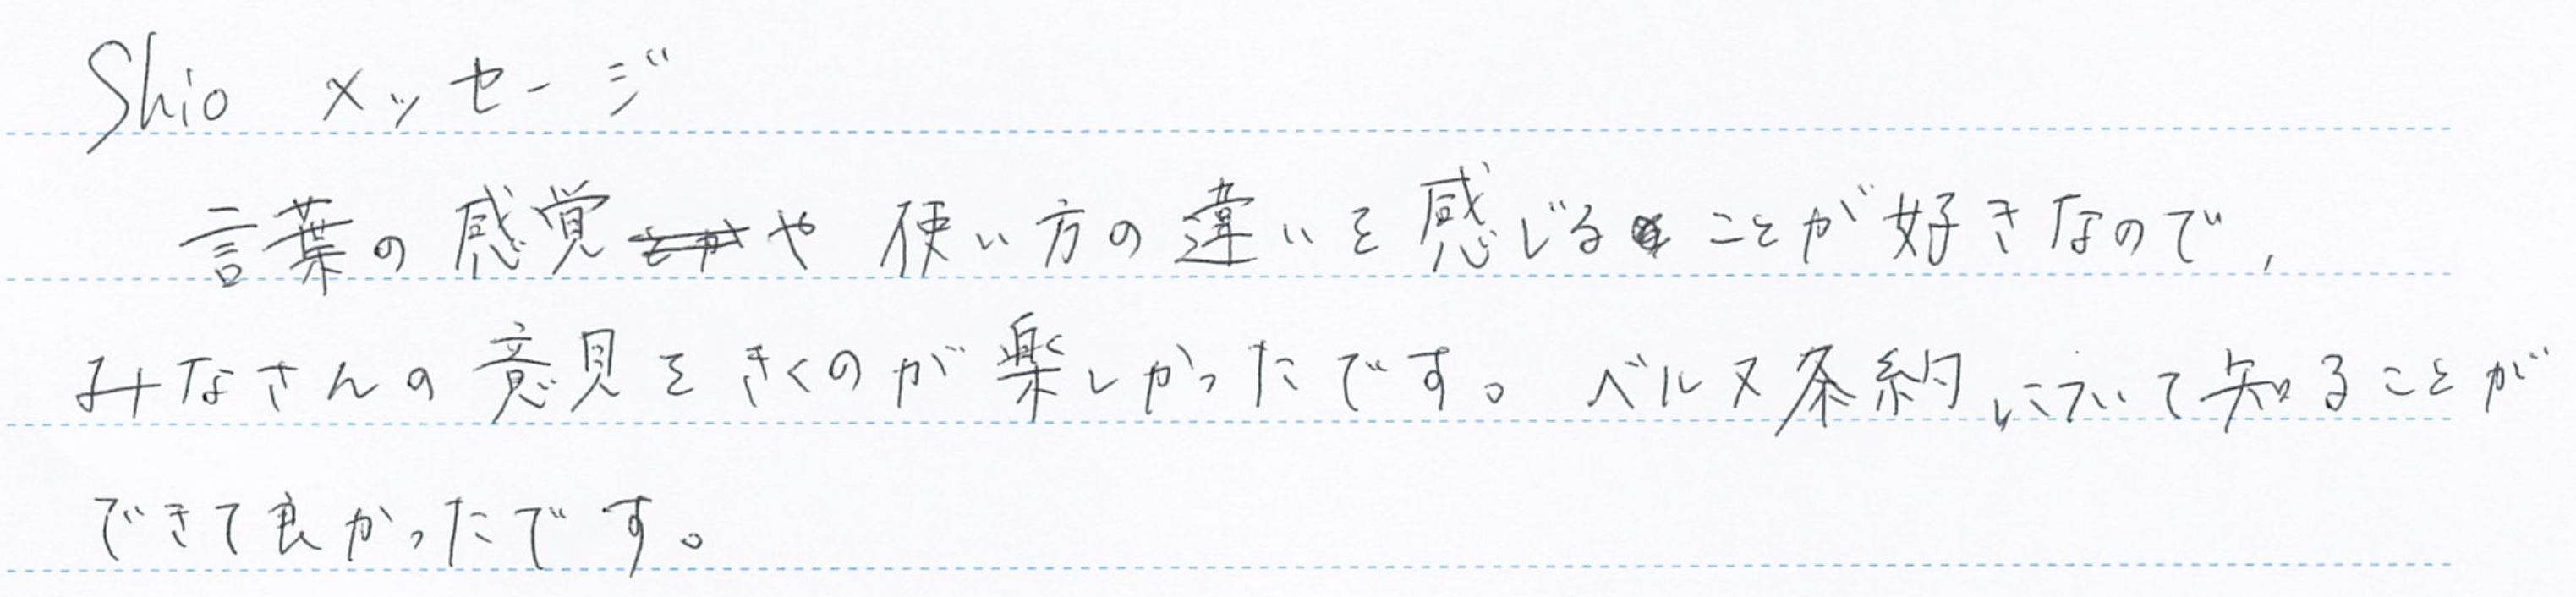 Shio メッセージ
言葉の感覚や使い方の違いを感じることが好きなので,
みなさんの意見をきくのが楽しかったです。ベルヌ条約について知ることが
できて良かったです。